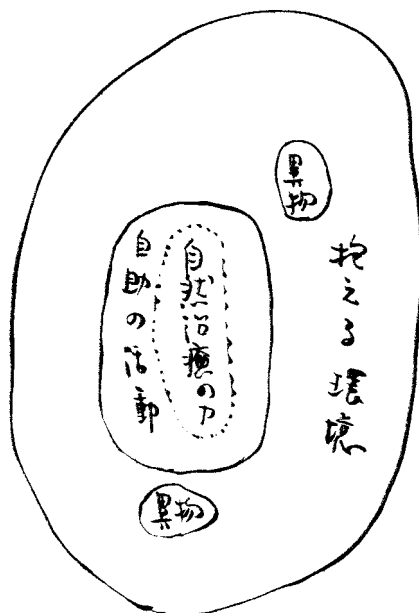 異物
抱える環境
自然治癒の力
自助の活動
異物